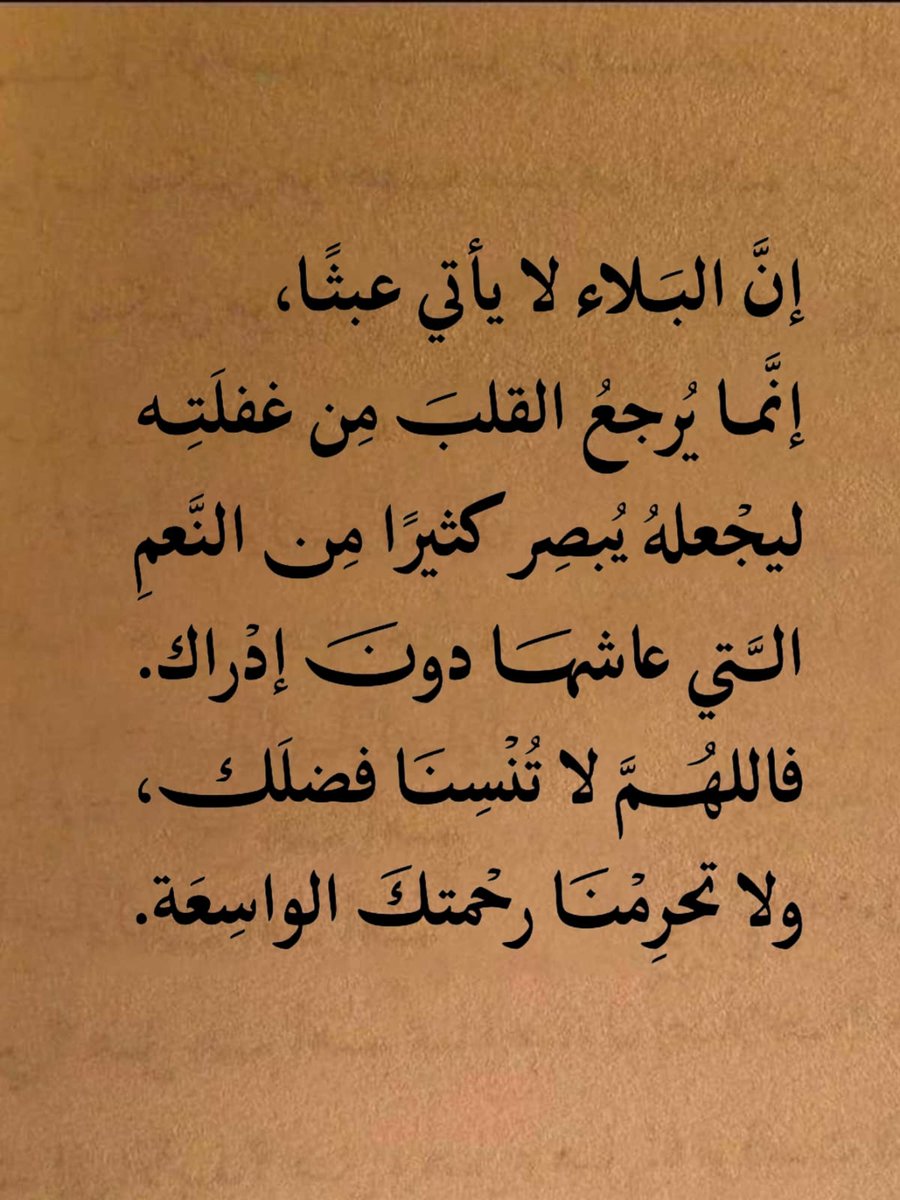 إنَّ البَلاء لا يأتي عبثًا،
إنَّما يُرجعُ القلبَ مِن غفلَتِه
ليجْعلهُ يُبصِر كثيرًا مِن النَّعمِ
الـَّتي عاشهَا دونَ إدْراك.
فاللهُمَّ لا تُنْسِنَا فضلَك،
ولا تحرِمْنَا رحْمتكَ الواسِعَة.